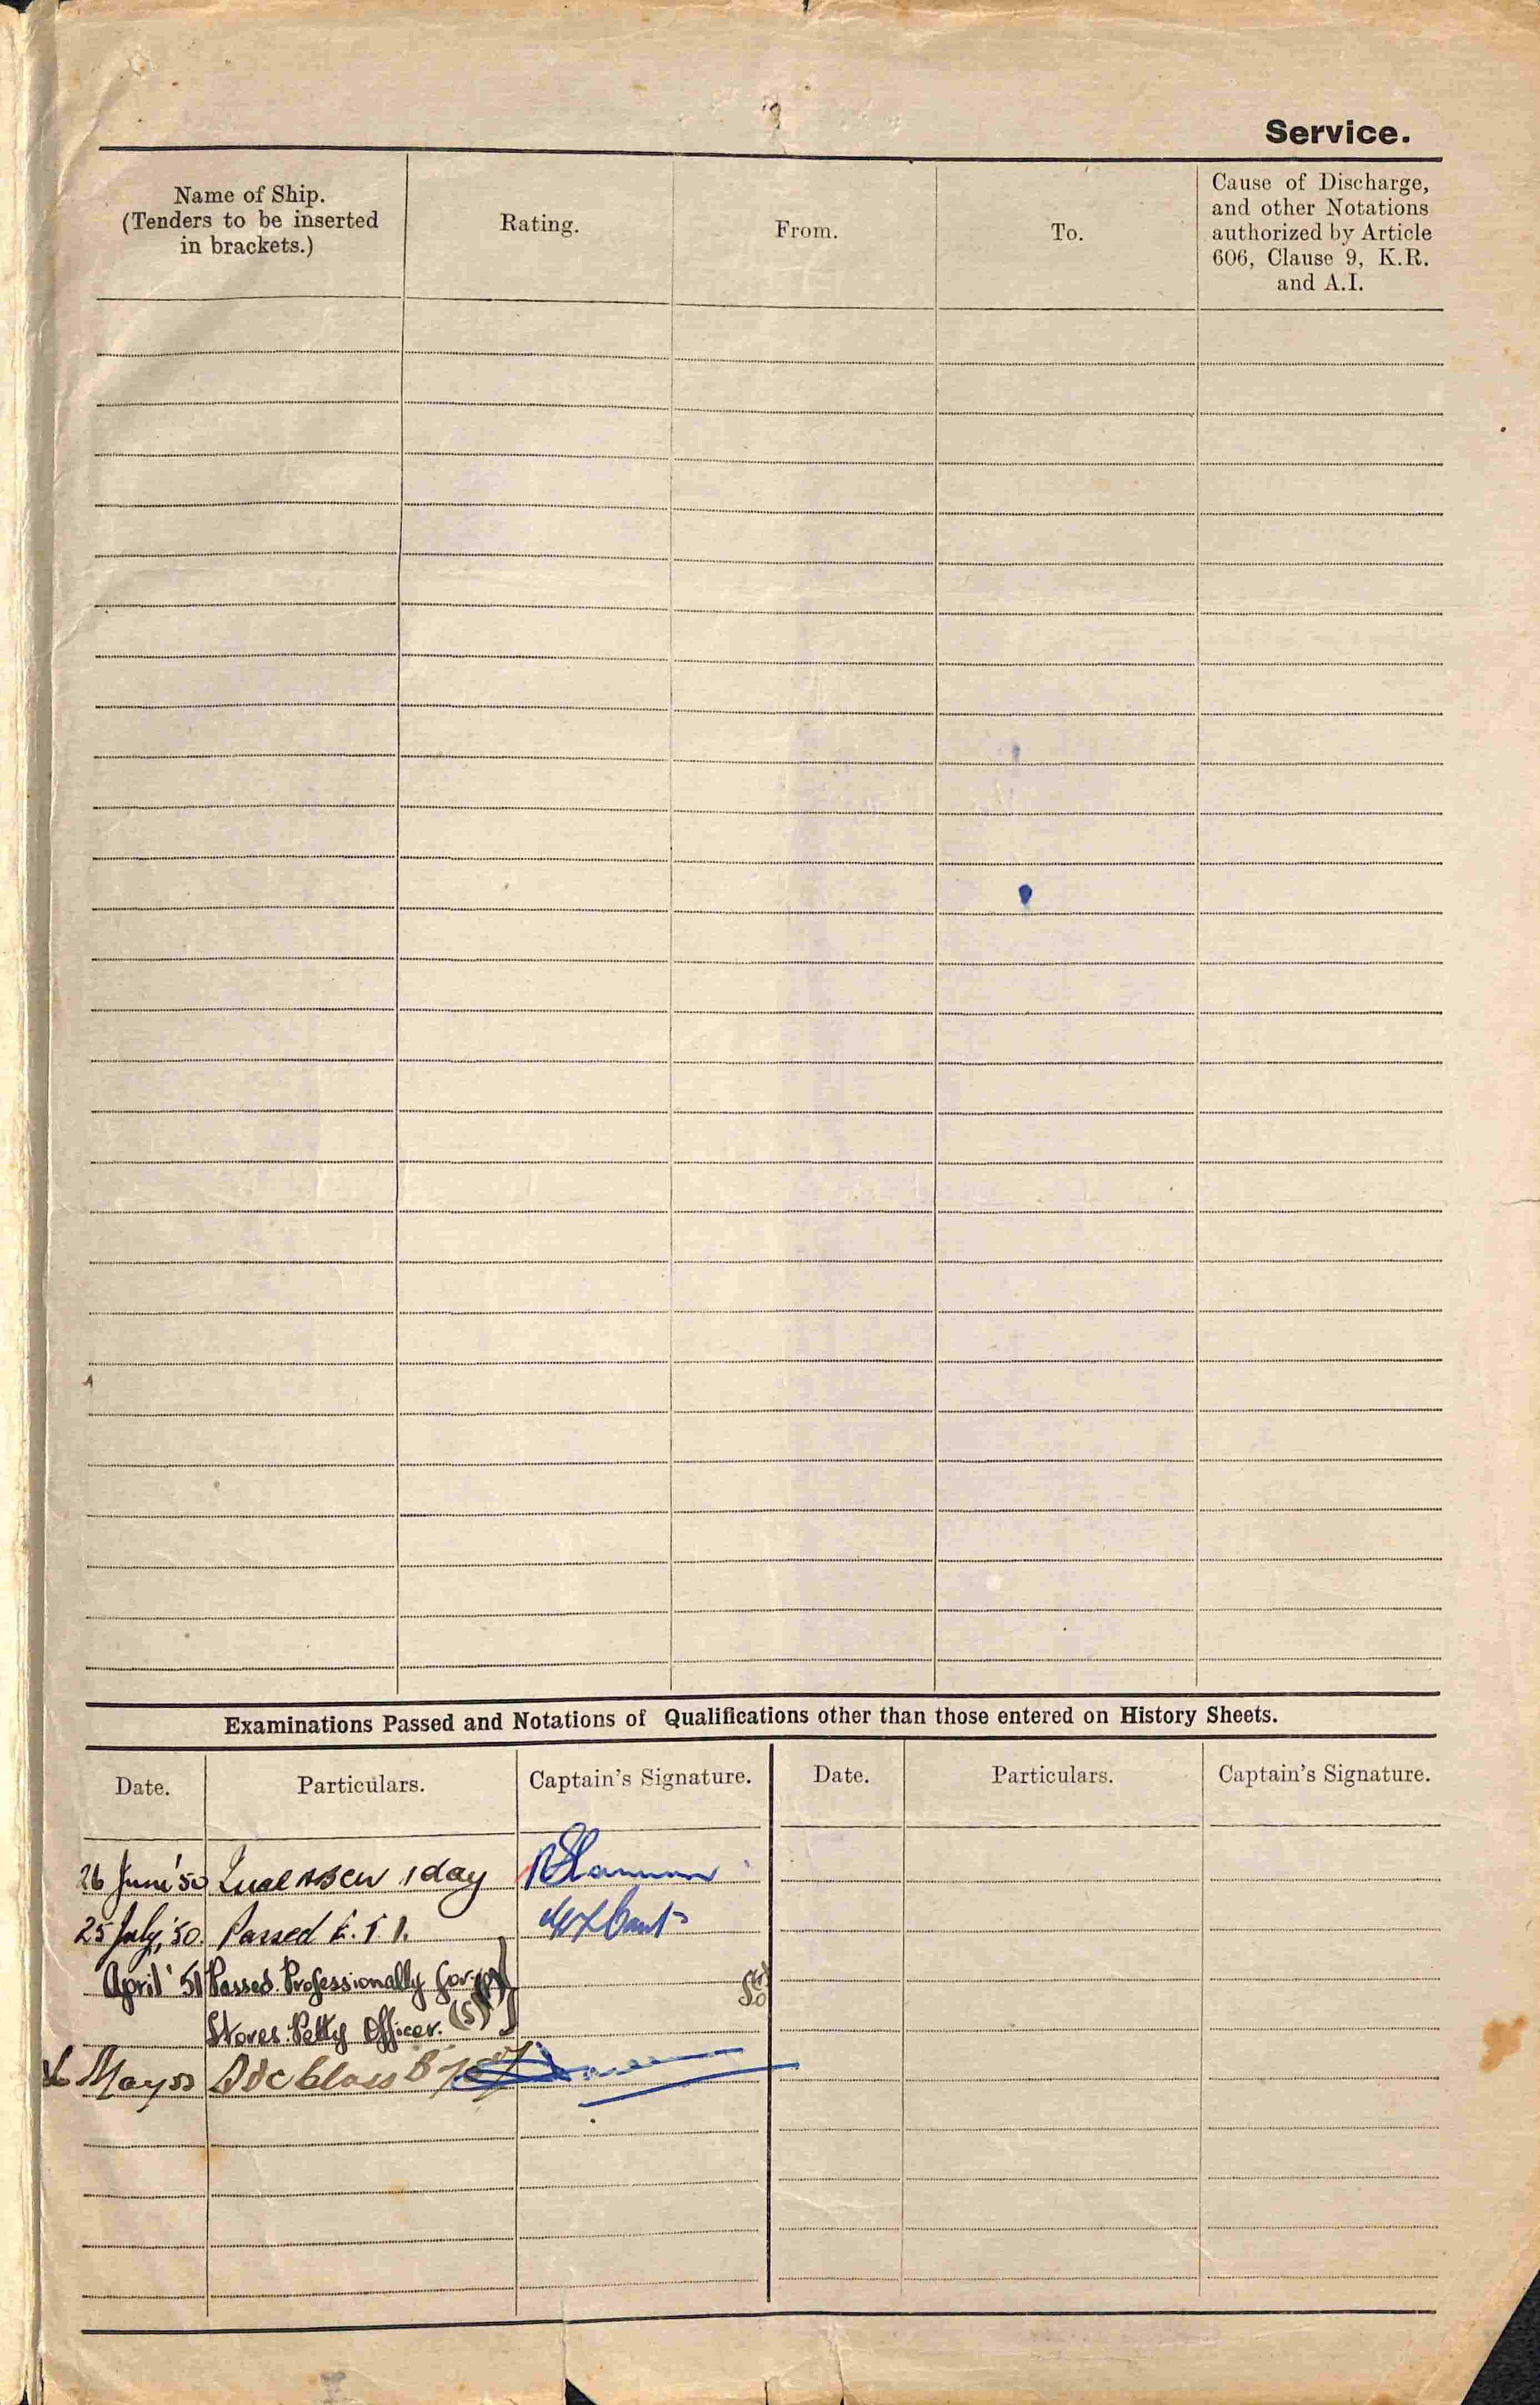 Service.
Name of Ship.
(Tenders to be inserted
in brackets.)
Rating.
From.
To.
Cause of Discharge,
and other Notations
authorized by Article
606, Clause 9, K.R.
and A.I.
Examinations Passed and Notations of Qualifications other than those entered on History Sheets.
Date. Particulars. Captain's Signature. Date. Particulars. Captain's Signature.
26 June '50 1 day
25 July, '50. Passed E.T.1.
April '51 Passed Professionally for
Stores Petty Officer. (S)
May 53 Class B